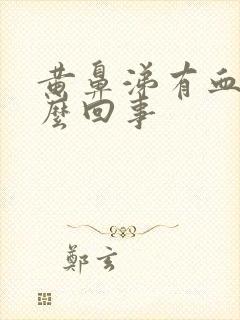 黄鼻涕有血
麼回事
鄭玄